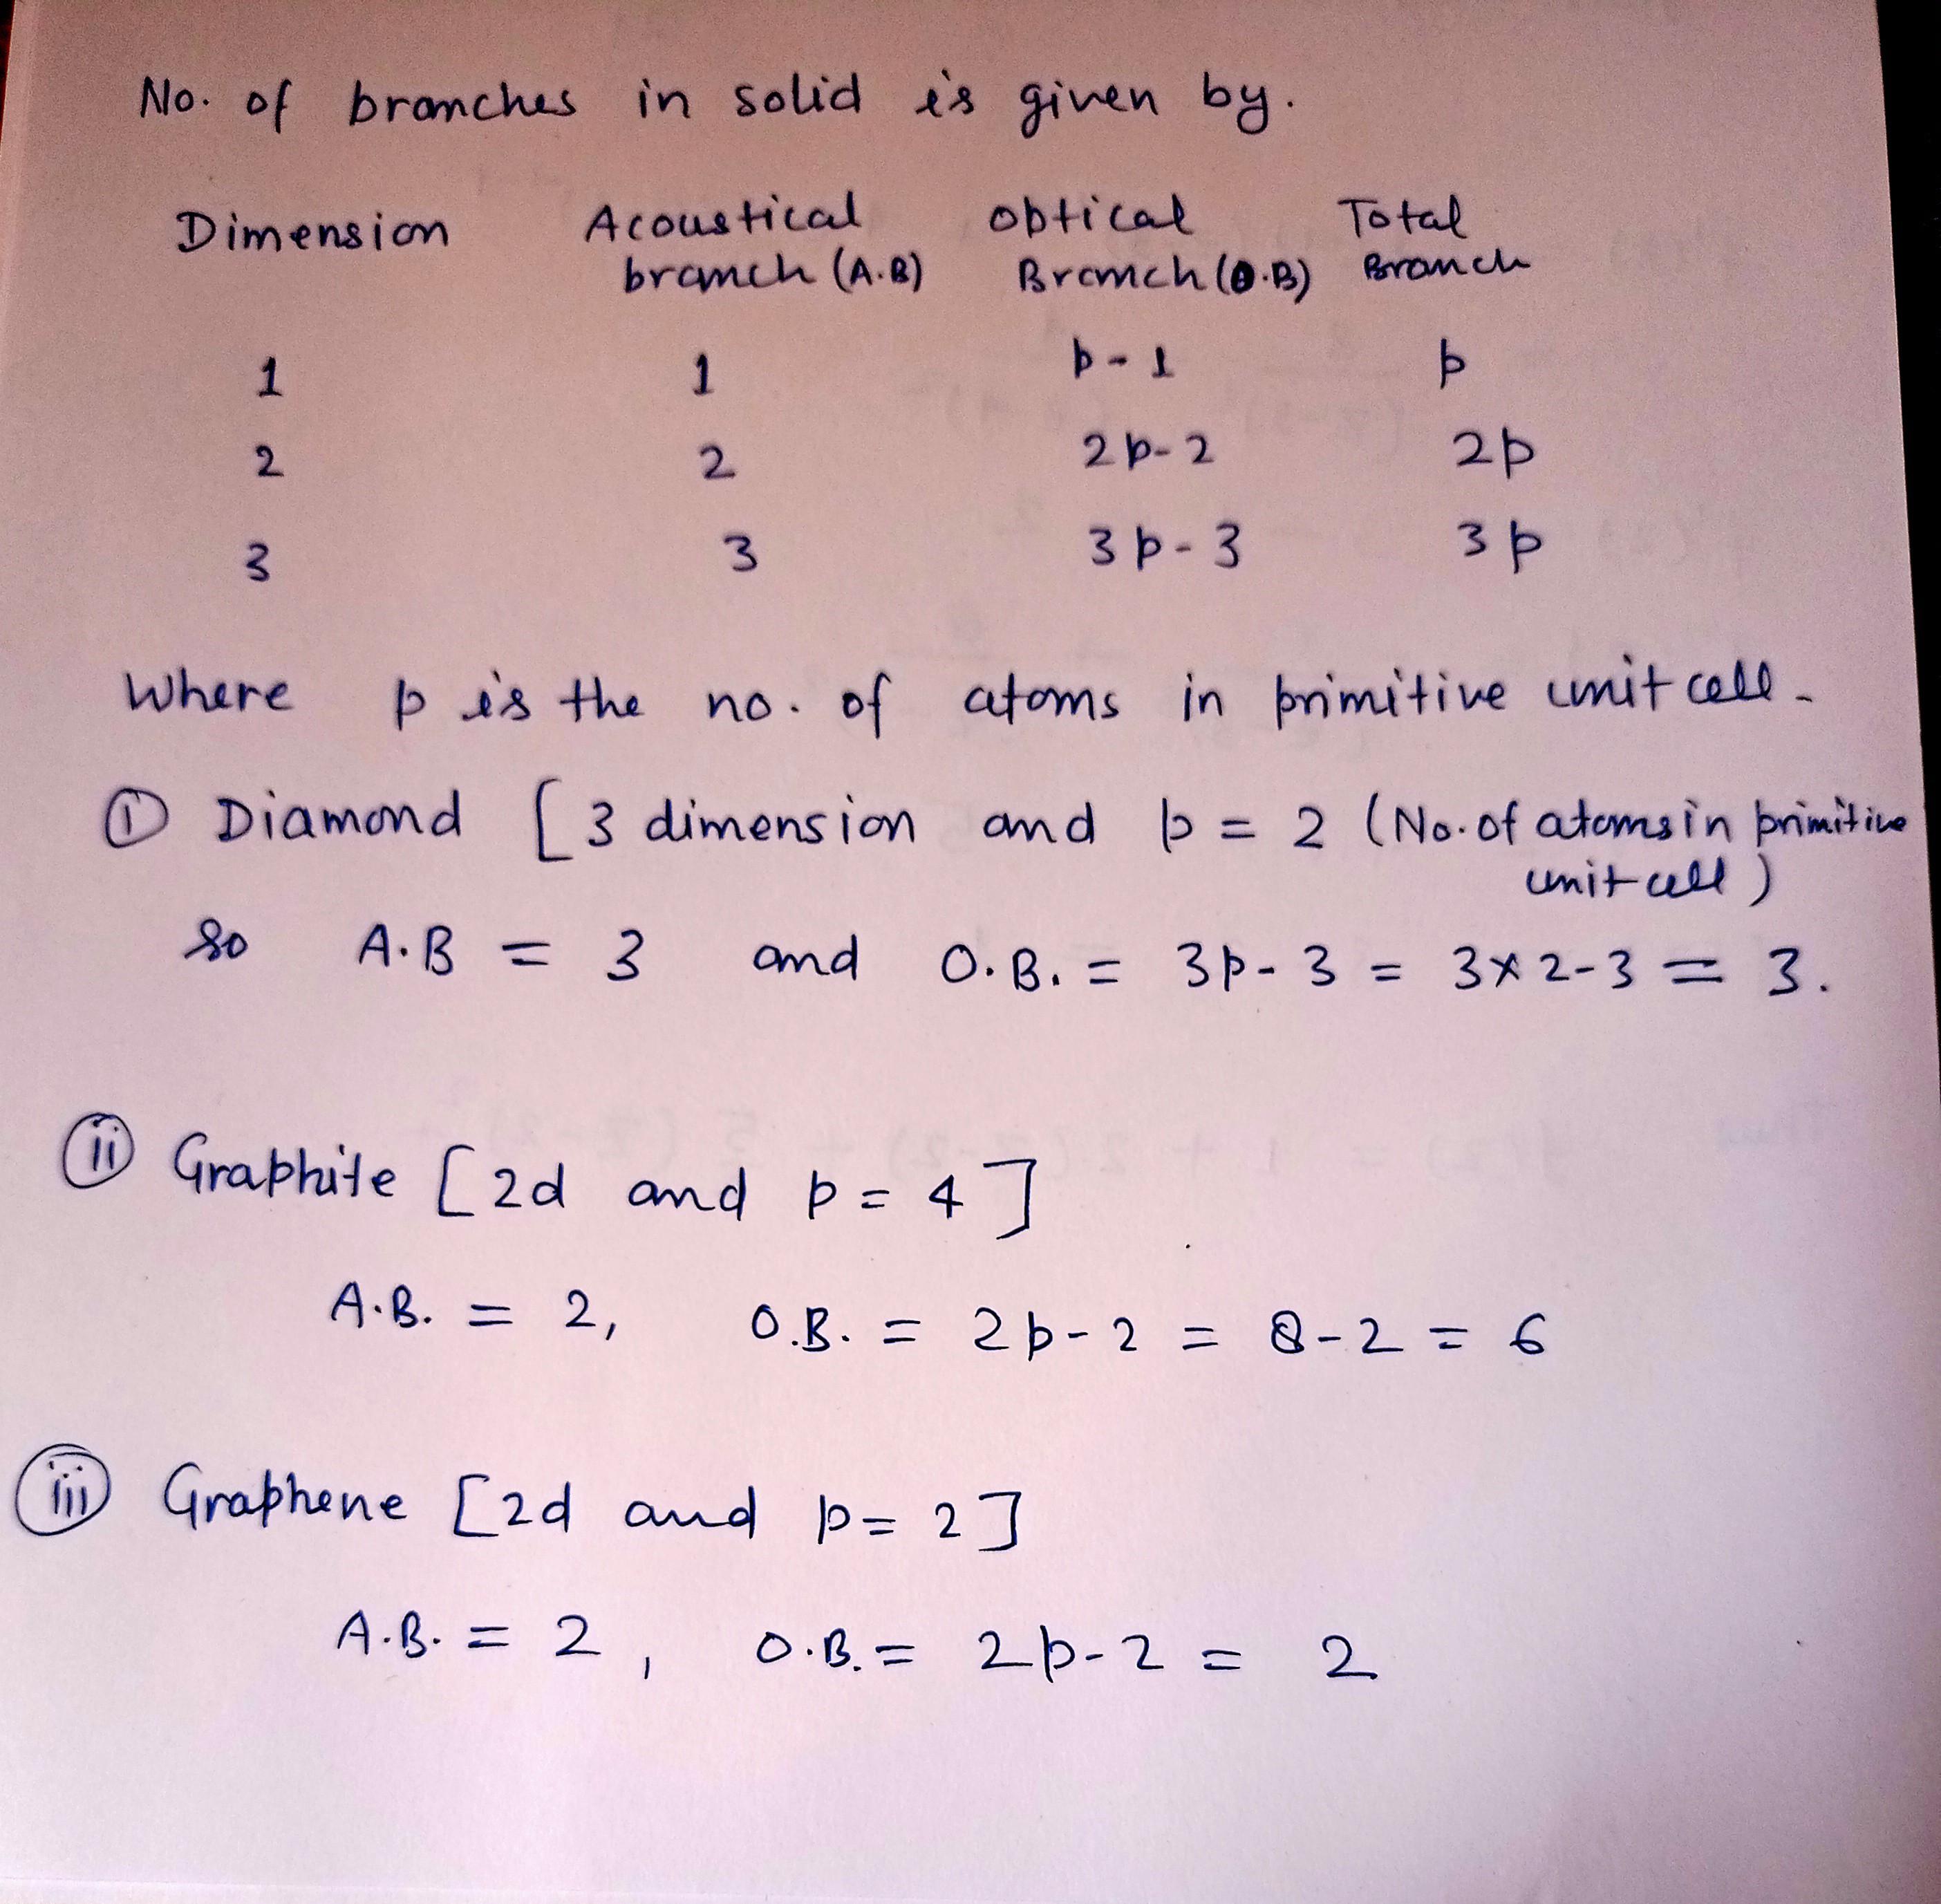 No. of branches in solid is given by.
Dimension Acoustical branch (A.B) Optical Branch (O.B) Total Branch
1 1 p-1 p
2 2 2p-2 2p
3 3 3p-3 3p
Where p is the no. of atoms in primitive unit cell.
① Diamond [3 dimension and p = 2 (No. of atoms in primitive
unit cell)
so A.B = 3 and O.B. = 3p-3 = 3×2-3 = 3.
ⓘⓘ Graphite [2d and p = 4]
A.B. = 2, O.B. = 2p-2 = 8-2 = 6
iii Graphene [2d and p = 2]
A.B. = 2, O.B. = 2p-2 = 2